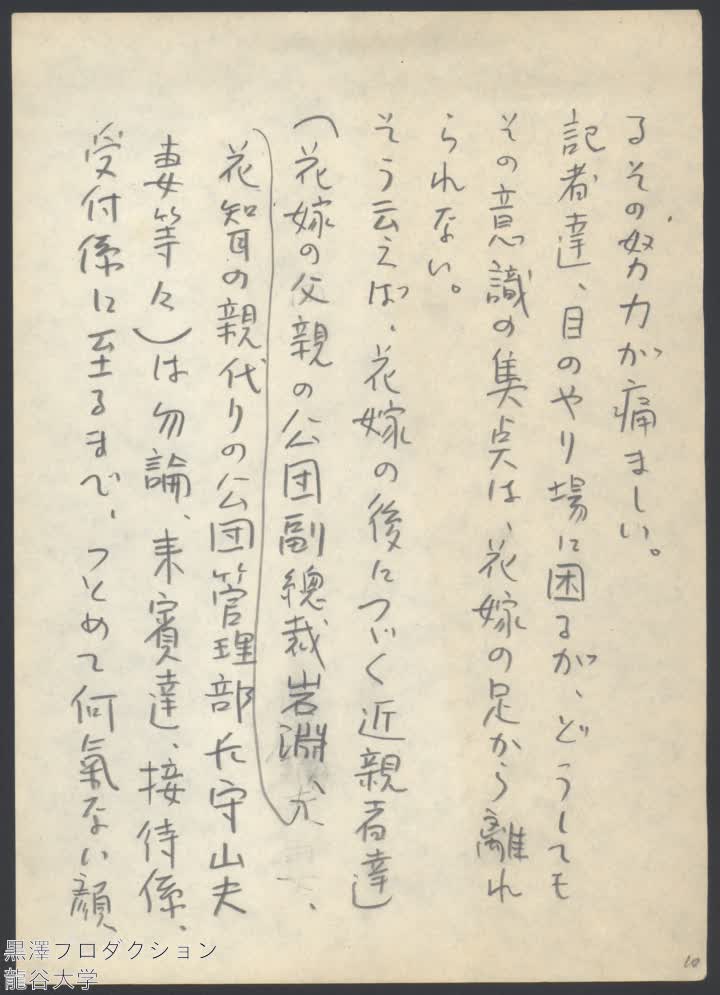 るその努力が痛ましい。
記者達、目のやり場に困るが、どうしても
その意識の集点は、花嫁の足から離れ
られない。
そう云えば、花嫁の後につゞく近親者達
(花嫁の父親の公団副總裁岩淵、
花智の親代りの公団管理部長守山夫
妻等々)は勿論、来賓達、接待係、
受付係に至るまで、つとめて何氣ない顔
10
黒澤プロダクション
龍谷大学